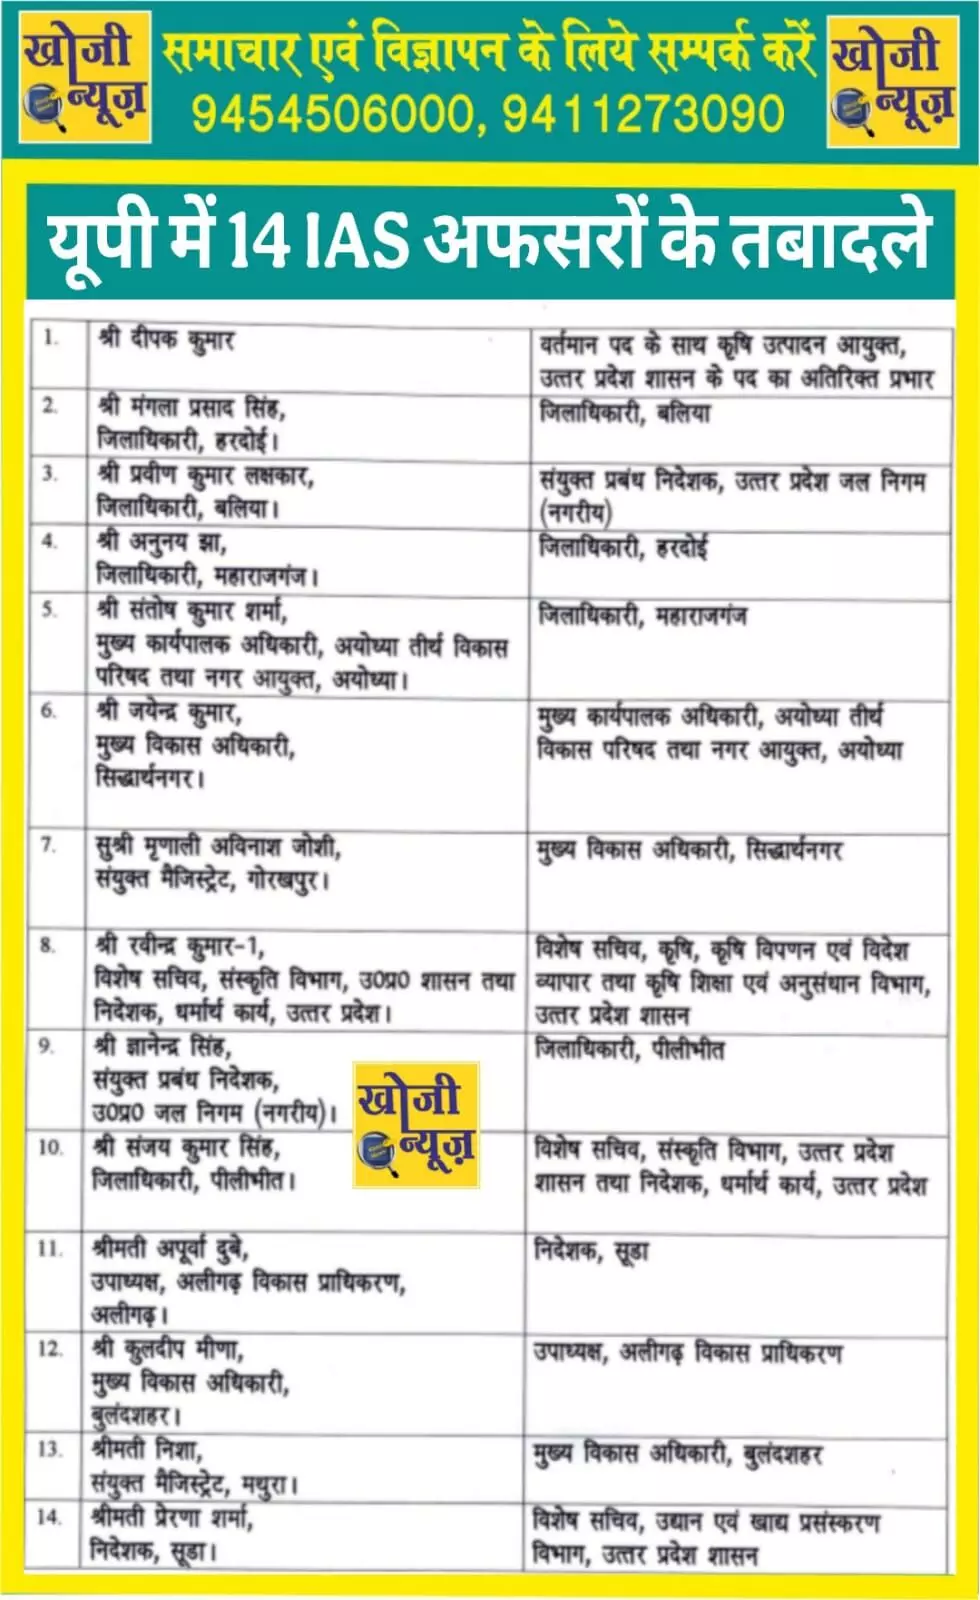 खोजी
न्यूज़
समाचार एवं विज्ञापन के लिये सम्पर्क करें
9454506000, 9411273090
खोजी
न्यूज़
यूपी में 14 IAS अफसरों के तबादले
1. श्री दीपक कुमार
वर्तमान पद के साथ कृषि उत्पादन आयुक्त,
उत्तर प्रदेश शासन के पद का अतिरिक्त प्रभार
2. श्री मंगला प्रसाद सिंह,
जिलाधिकारी, हरदोई।
जिलाधिकारी, बलिया
3. श्री प्रवीण कुमार लक्षकार,
जिलाधिकारी, बलिया।
संयुक्त प्रबंध निदेशक, उत्तर प्रदेश जल निगम
(नगरीय)
4. श्री अनुनय झा,
जिलाधिकारी, महाराजगंज।
जिलाधिकारी, हरदोई
5. श्री संतोष कुमार शर्मा,
मुख्य कार्यपालक अधिकारी, अयोध्या तीर्थ विकास
परिषद तथा नगर आयुक्त, अयोध्या।
जिलाधिकारी, महाराजगंज
6. श्री जयेन्द्र कुमार,
मुख्य विकास अधिकारी,
सिद्धार्थनगर।
मुख्य कार्यपालक अधिकारी, अयोध्या तीर्थ
विकास परिषद तथा नगर आयुक्त, अयोध्या
7. सुश्री मृणाली अविनाश जोशी,
संयुक्त मैजिस्ट्रेट, गोरखपुर।
मुख्य विकास अधिकारी, सिद्धार्थनगर
8. श्री रवीन्द्र कुमार-1,
विशेष सचिव, संस्कृति विभाग, उ0प्र0 शासन तथा
निदेशक, धर्मार्थ कार्य, उत्तर प्रदेश।
विशेष सचिव, कृषि, कृषि विपणन एवं विदेश
व्यापार तथा कृषि शिक्षा एवं अनुसंधान विभाग,
उत्तर प्रदेश शासन
9. श्री ज्ञानेन्द्र सिंह,
संयुक्त प्रबंध निदेशक,
उ0प्र0 जल निगम (नगरीय)।
जिलाधिकारी, पीलीभीत
खोजी
न्यूज़
10. श्री संजय कुमार सिंह,
जिलाधिकारी, पीलीभीत।
विशेष सचिव, संस्कृति विभाग, उत्तर प्रदेश
शासन तथा निदेशक, धर्मार्थ कार्य, उत्तर प्रदेश
11. श्रीमती अपूर्वा दुबे,
उपाध्यक्ष, अलीगढ़ विकास प्राधिकरण,
अलीगढ़।
निदेशक, सूडा
12. श्री कुलदीप मीणा,
मुख्य विकास अधिकारी,
बुलंदशहर।
उपाध्यक्ष, अलीगढ़ विकास प्राधिकरण
13. श्रीमती निशा,
संयुक्त मैजिस्ट्रेट, मथुरा।
मुख्य विकास अधिकारी, बुलंदशहर
14. श्रीमती प्रेरणा शर्मा,
निदेशक, सूडा।
विशेष सचिव, उद्यान एवं खाद्य प्रसंस्करण
विभाग, उत्तर प्रदेश शासन